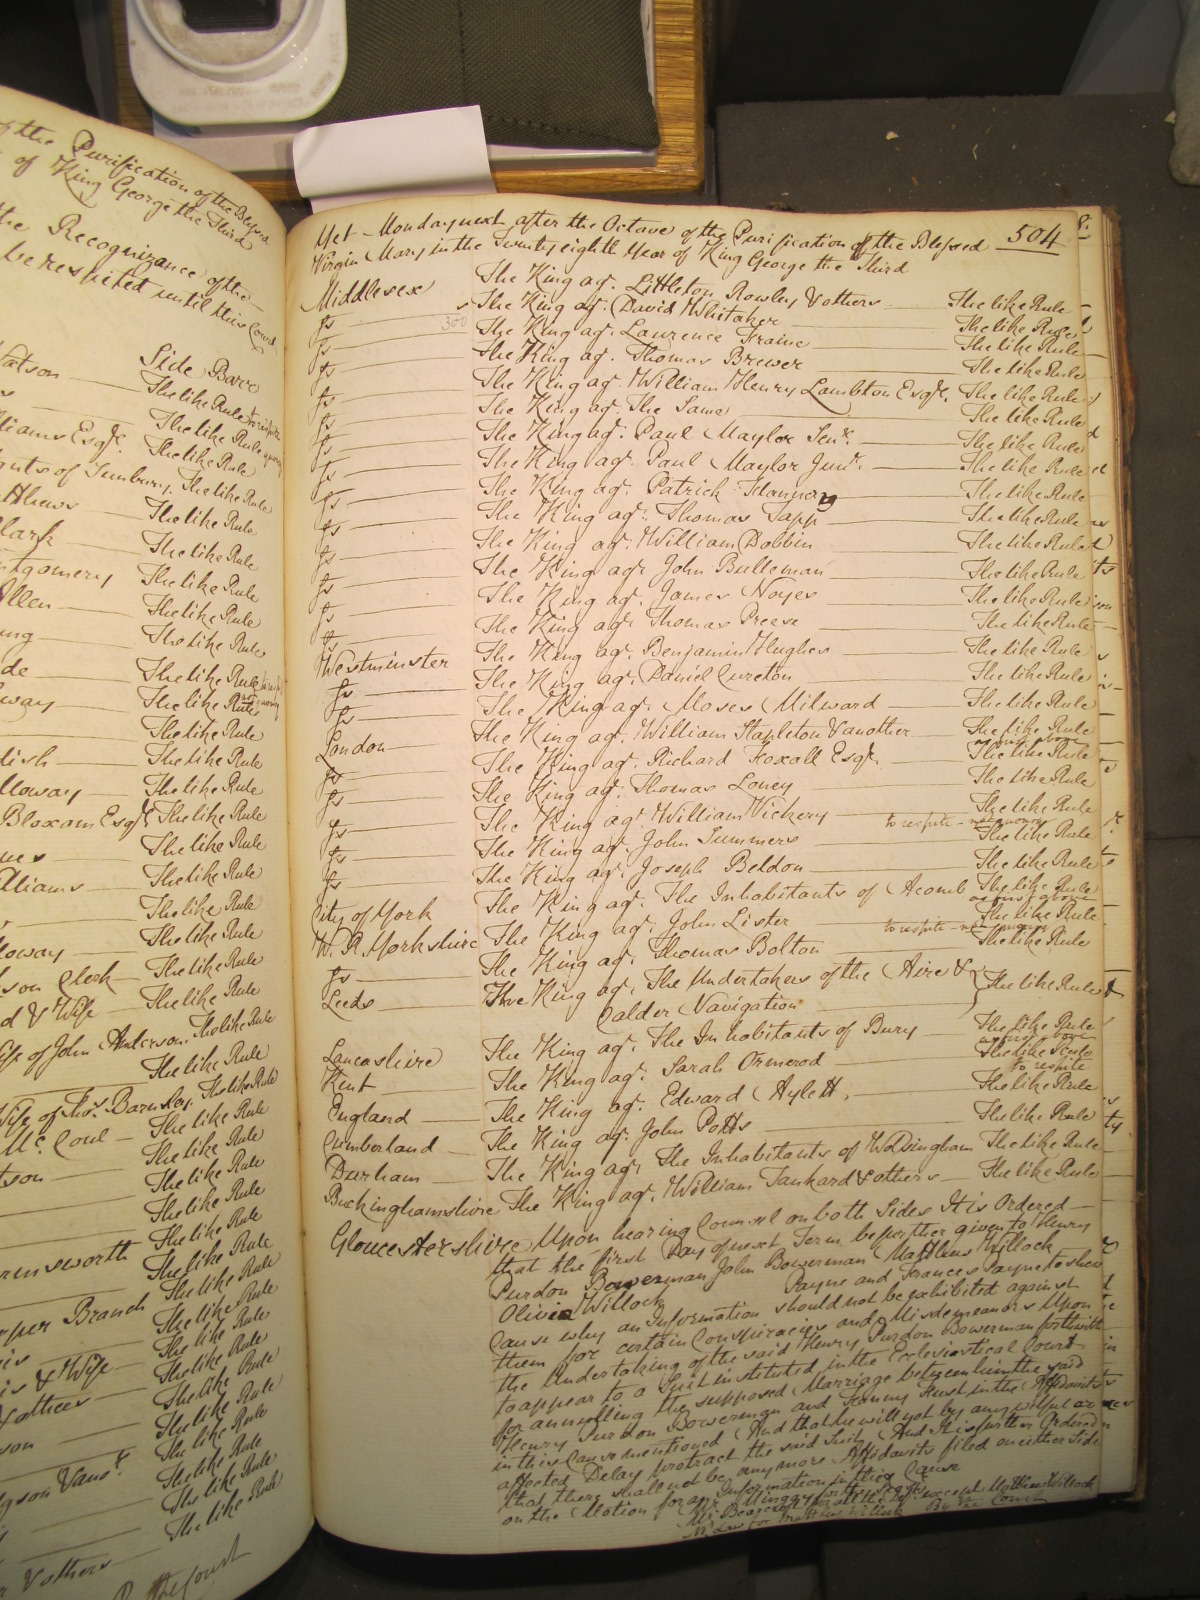 of the Purification of the Blessed
of King George the Third
the Recognizance of the
be respited until this Court
Side Barr
Watson The like Rule to respite
The like Rule
liams Esqr. The like Rule
of Sunbury The like Rule
tthews The like Rule
lark The like Rule
ntgomery The like Rule
Allen The like Rule
ung The like Rule
de The like Rule
way The like Rule
The like Rule
lish The like Rule
lloway The like Rule
Bloxam Esqr. The like Rule
nes The like Rule
lliams The like Rule
The like Rule
loway The like Rule
son Clerk The like Rule
d & Wife The like Rule
Wife of John Anderson The like Rule
The like Rule
Wife of Thos. Barnsley The like Rule
Mc. Coul The like Rule
tson The like Rule
The like Rule
The like Rule
The like Rule
rmsworth The like Rule
The like Rule
per Branch The like Rule
is The like Rule
is & Wife The like Rule
& others The like Rule
son The like Rule
The like Rule
gson & anor. The like Rule
The like Rule
The like Rule
& others The like Rule
By the Court
Yet Monday next after the Octave of the Purification of the Blessed 504
Virgin Mary in the Twenty eighth Year of King George the Third
Middlesex The King agt. Littleton Rowley & others The like Rule
fs The King agt. David Whitaker The like Rule
fs 300 The King agt. Laurence Fraine The like Rule
fs The King agt. Thomas Brewer The like Rule
fs The King agt. William Henry Lambton Esqr. The like Rule
fs The King agt. The Same The like Rule
fs The King agt. Paul Maylor Senr. The like Rule
fs The King agt. Paul Maylor Junr. The like Rule
fs The King agt. Patrick Hannan The like Rule
fs The King agt. Thomas Tapp The like Rule
fs The King agt. William Dobbin The like Rule
fs The King agt. John Bulleman The like Rule
fs The King agt. James Noyes The like Rule
fs The King agt. Thomas Preese The like Rule
Westminster The King agt. Benjamin Hughes The like Rule
fs The King agt. Daniel Cureton The like Rule
fs The King agt. Moses Milward The like Rule
London The King agt. William Stapleton & another The like Rule
fs The King agt. Richard Foxall Esqr. as first above The like Rule
fs The King agt. Thomas Loney The like Rule
fs The King agt. William Vickery The like Rule
fs The King agt. John Summers to respite The like Rule
fs The King agt. Joseph Beldon The like Rule
City of York The King agt. The Inhabitants of Acomb The like Rule
W. R. Yorkshire The King agt. John Lister as first above The like Rule
fs The King agt. Thomas Bolton to respite The like Rule
Leeds The King agt. The Undertakers of the Aire & The like Rule
Calder Navigation
Lancashire The King agt. The Inhabitants of Bury The like Rule
Kent The King agt. Sarah Ormerod as first above The like Rule
England The King agt. Edward Aylett, to respite The like Rule
Cumberland The King agt. John Potts The like Rule
Durham The King agt. The Inhabitants of Wolsingham The like Rule
Buckinghamshire The King agt. William Tankard & others The like Rule
Gloucestershire Upon hearing Counsel on both Sides It is Ordered
that the first Day of next Term be further given to Henry
Purdon Bowerman John Bowerman Matthew Willock
Olivia Willock Payne and Frances Payne to shew
Cause why an Information should not be exhibited against
them for certain Conspiracies and Misdemeanors Upon
the Undertaking of the said Henry Purdon Bowerman forthwith
to appear to a Suit instituted in the Ecclesiastical Court
for annulling the supposed Marriage between him the said
Henry Purdon Bowerman and Fanny Hurst in the Affidavits
in this Cause mentioned And that he will not by any wilful or
affected Delay protract the said Suit And It is further Ordered
that there shall not be any more Affidavits filed on either Side
on the Motion for an Information in this Cause
Mr. Bearcroft for all the Defts. except Matthew Willock
Mr. Law for Matthew Willock By the Court